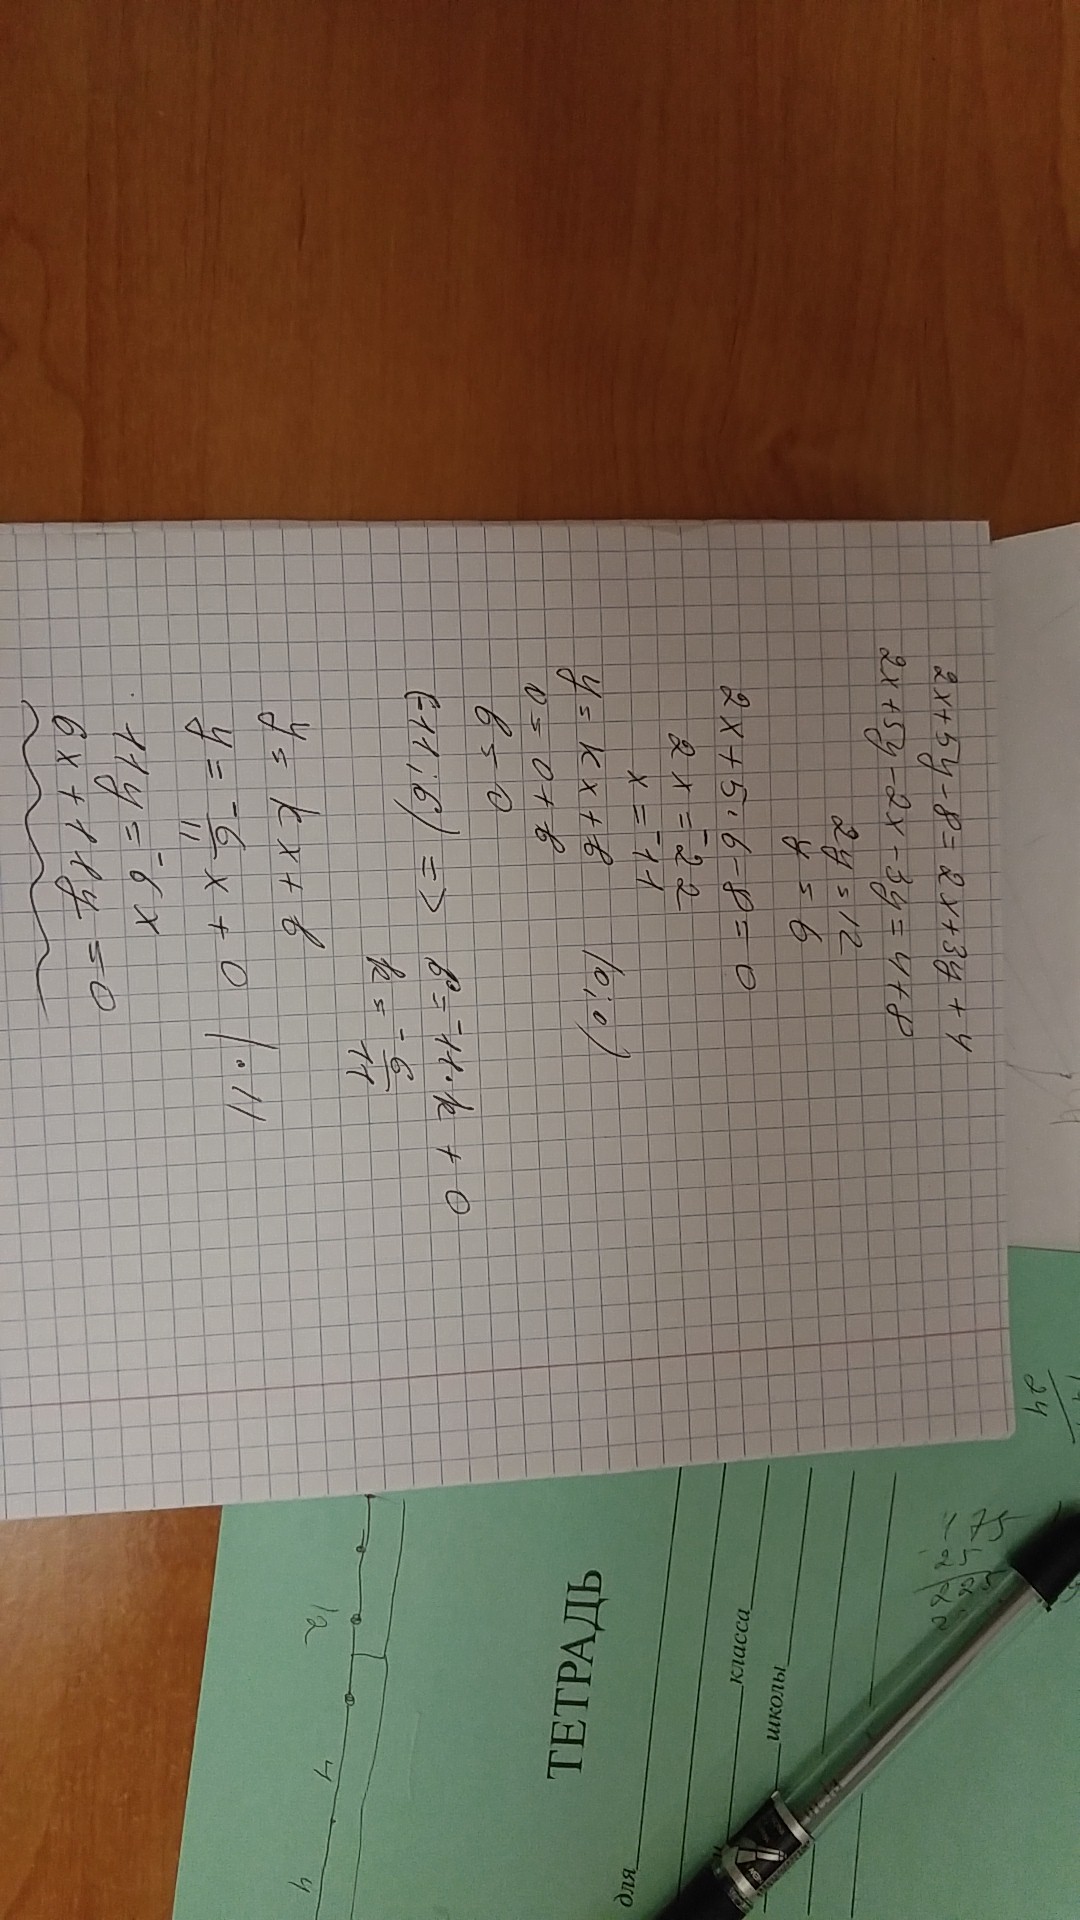 2x+5y-8=2x+3y+4
2x+5y-2x-3y=4+8
2y=12
y=6
2x+5·6-8=0
2x=-22
x=-11
y=kx+b (0;0)
0=0+b
b=0
(-11;6) => 6=-11·k+0
k=-6/11
y=kx+b
y=-6/11x+0 |·11
11y=-6x
6x+11y=0
ТЕТРАДЬ
для
класса
школы
12
4
4
24
75